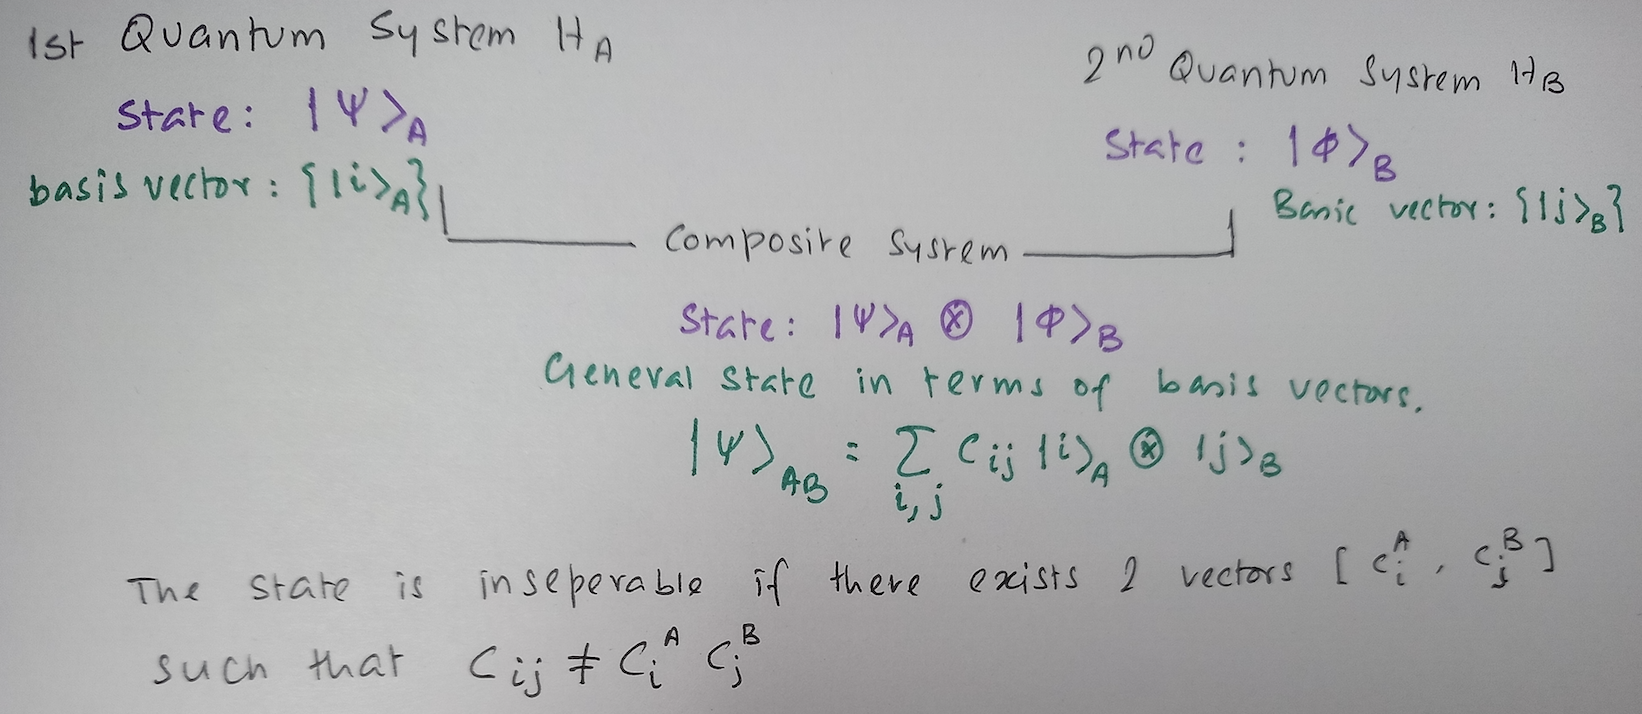 1st Quantum System H_A
State: |Ψ>_A
basis vector: {|i>_A}
2nd Quantum System H_B
State: |ϕ>_B
Basic vector: {|j>_B}
Composite System
State: |Ψ>_A ⊗ |ϕ>_B
General state in terms of basis vectors.
|Ψ>_AB = Σ_{i,j} C_ij |i>_A ⊗ |j>_B
The state is inseperable if there exists 2 vectors [c_i^A, c_j^B]
such that C_ij ≠ C_i^A C_j^B